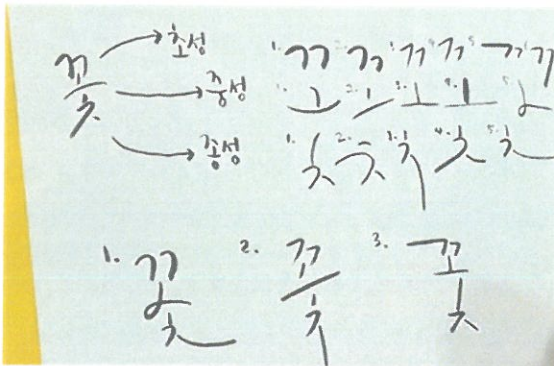 꽃 초성
중성
종성
1. ㄲ 2. ㄲ 3. ㄲ 4. ㄲ 5. ㄲ
1. ㅗ 2. ㅗ 3. ㅗ 4. ㅗ 5. ㅗ
1. ㅊ 2. ㅊ 3. ㅊ 4. ㅊ 5. ㅊ
1. 꽃 2. 꽃 3. 꽃